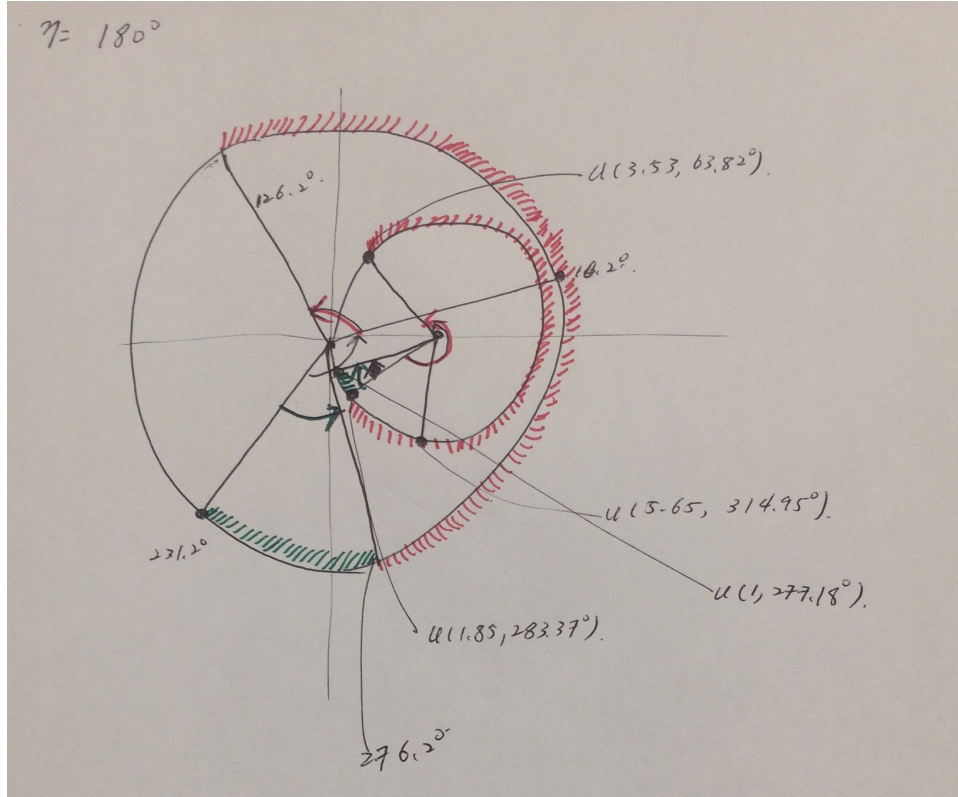 η= 180°
126.2°.
u(3.53, 63.82°).
16.2°.
u(5.65, 314.95°).
231.2°
u(1, 277.18°).
u(1.85, 283.37°).
276.2°